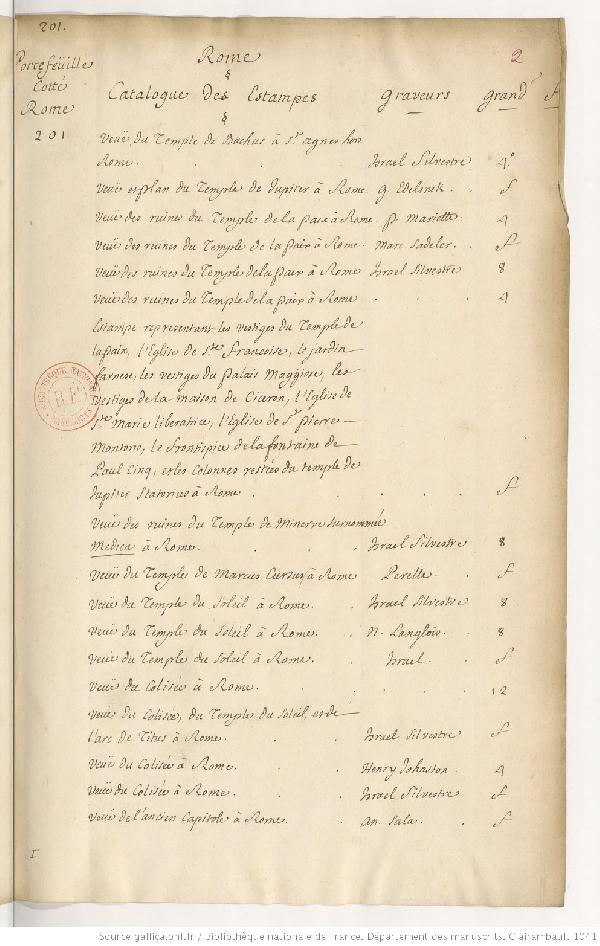 201.
Portefeüille
Cotté
Rome
201
Rome
2
§
Catalogue Des Estampes
Graveurs
grandr
f
§
Veüe du Temple de Bachus à St agnes hors
Rome. Israel Silvestre 4°
Veüe et plan du Temple de Jupiter à Rome g. Edelinck. f
Veüe des ruines du Temple de la paix à Rome. p. Mariette 4
Veüe des ruines du Temple de la paix à Rome. Marc Sadeler. f
Veüe des ruines du Temple de la paix à Rome Israel Silvestre 8
Veüe des ruines du Temple de la paix à Rome . . 4
Estampe representant les vestiges du Temple de
la paix, l'Eglise de Ste Francoise, le jardin
farnese, les vestiges du Palais Maggiore, les
vestiges de la maison de Ciceron, l'Eglise de
Ste Marie liberatrice, l'Eglise de St pierre
Montorio, le frontispice de la fontaine de
Paul Cinq, et les Colonnes restées du temple de
Jupiter Statorices à Rome . . . . f
Veüe des ruines du Temple de Minerve surnommée
Medica à Rome. . . Israel Silvestre 8
Veüe du Temple de Marcus Cursus à Rome Perelle. f
Veüe du Temple du Soleil à Rome. . Israel Silvestre 8
Veüe du Temple du Soleil à Rome. . N. Langlois. 8
Veüe du Temple du Soleil à Rome. . Israel. f
Veüe du Colisée à Rome. . . . . 12
Veüe du Colisée, du Temple du Soleil, et de
l'arc de Titus à Rome. . Israel Silvestre f
Veüe du Colisée à Rome. . . Henry Johnston. 4
Veüe du Colisée à Rome. . . Israel Silvestre f
Veüe de l'ancien Capitole à Rome. . an. Sala. . f
1
Source gallica.bnf.fr / Bibliothèque nationale de France. Département des manuscrits. Clairambault 1041